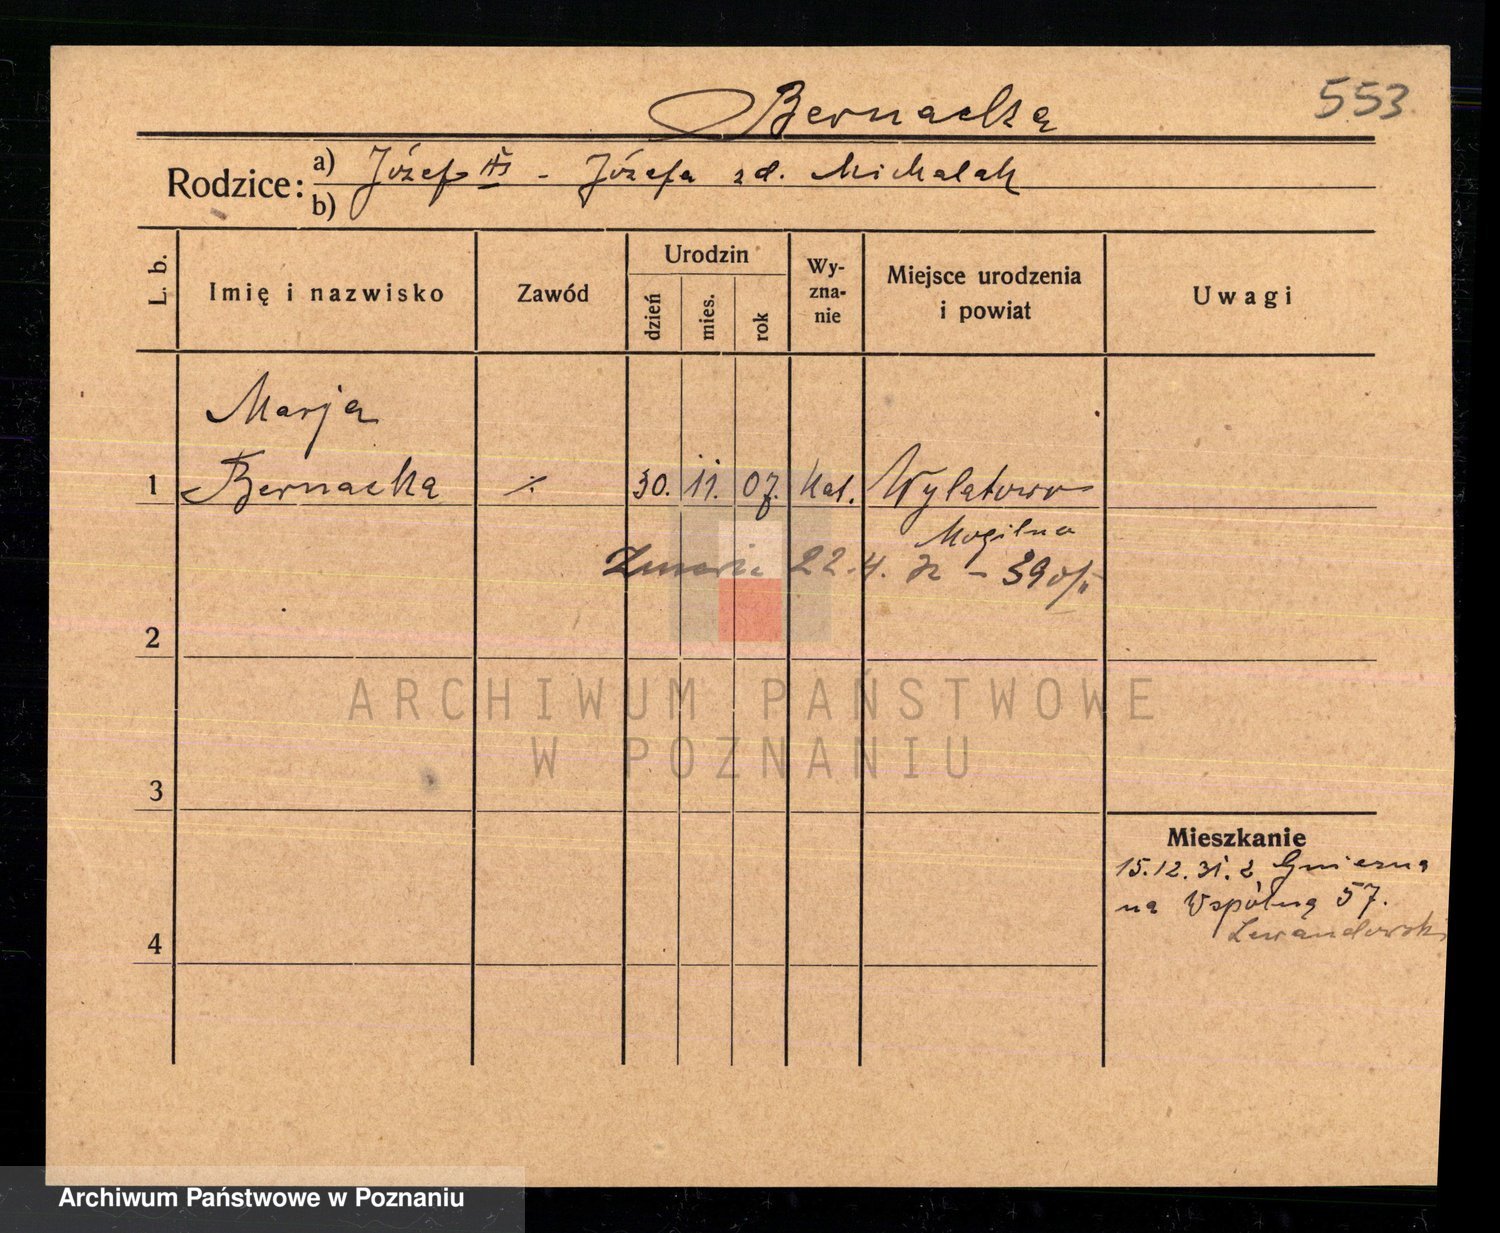 Bernacka
553
Rodzice:
a) Józef - Józefa zd. Michalak
b)
L. b.
Imię i nazwisko
Zawód
Urodzin
dzień
mies.
rok
Wy-
zna-
nie
Miejsce urodzenia
i powiat
Uwagi
Marja
1 Bernacka ∕. 30. 11. 07. kat. Wylatowo
Mogilna
22.4.
2
ARCHIWUM PAŃSTWOWE
W POZNANIU
3
Mieszkanie
15.12.31. z Gniezna
na Wspólną 57.
Lewandowski
4
Archiwum Państwowe w Poznaniu